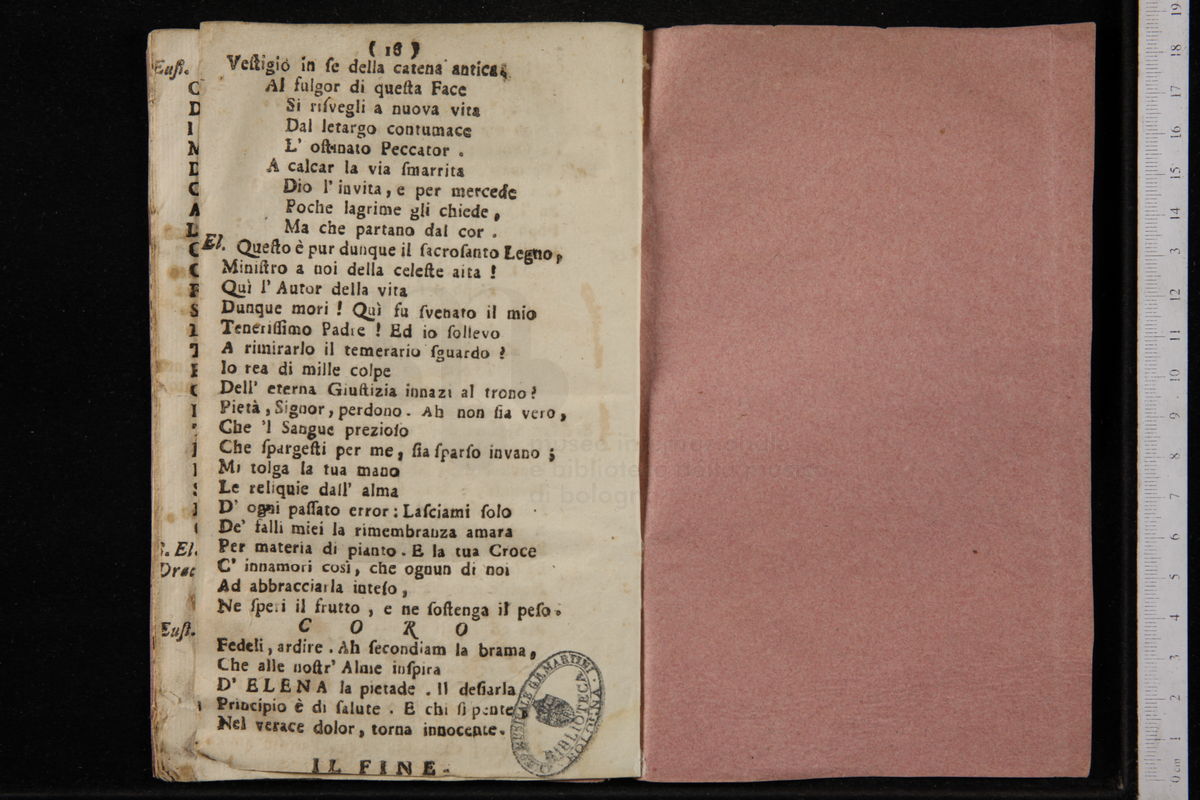 ( 16 )
Veſtigio in ſe della catena antica;
Al fulgor di queſta Face
Si riſvegli a nuova vita
Dal letargo contumace
L' oſtinato Peccator .
A calcar la via ſmarrita
Dio l' invita, e per mercede
Poche lagrime gli chiede,
Ma che partano dal cor .
El. Queſto è pur dunque il ſacroſanto Legno,
Miniſtro a noi della celeſte aita !
Quì l' Autor della vita
Dunque morì ! Quì fu ſvenato il mio
Teneriſſimo Padre ! Ed io ſollevo
A rimirarlo il temerario ſguardo ?
Io rea di mille colpe
Dell' eterna Giuſtizia innazi al trono?
Pietà, Signor, perdono. Ah non ſia vero,
Che 'l Sangue prezioſo
Che ſpargeſti per me, ſia ſparſo invano ;
Mi tolga la tua mano
Le reliquie dall' alma
D' ogni paſſato error : Laſciami ſolo
De' falli miei la rimembranza amara
Per materia di pianto. E la tua Croce
C' innamori così, che ognun di noi
Ad abbracciarla inteſo,
Ne ſperi il frutto, e ne ſoſtenga il peſo.
C O R O
Fedeli, ardire. Ah ſecondiam la brama,
Che alle noſtr' Alme inſpira
D' ELENA la pietade. Il deſiarla
Principio è di ſalute. E chi ſi pente,
Nel verace dolor, torna innocente.
IL FINE.
Euſt.
C
D
I
M
D
C
A
L
S. El.
Drac
Euſt.
MUSICALE G.B. MARTINI · BOLOGNA
BIBLIOTECA
museo in
e bibliote
di bologn
0 cm 1 2 3 4 5 6 7 8 9 10 11 12 13 14 15 16 17 18 19